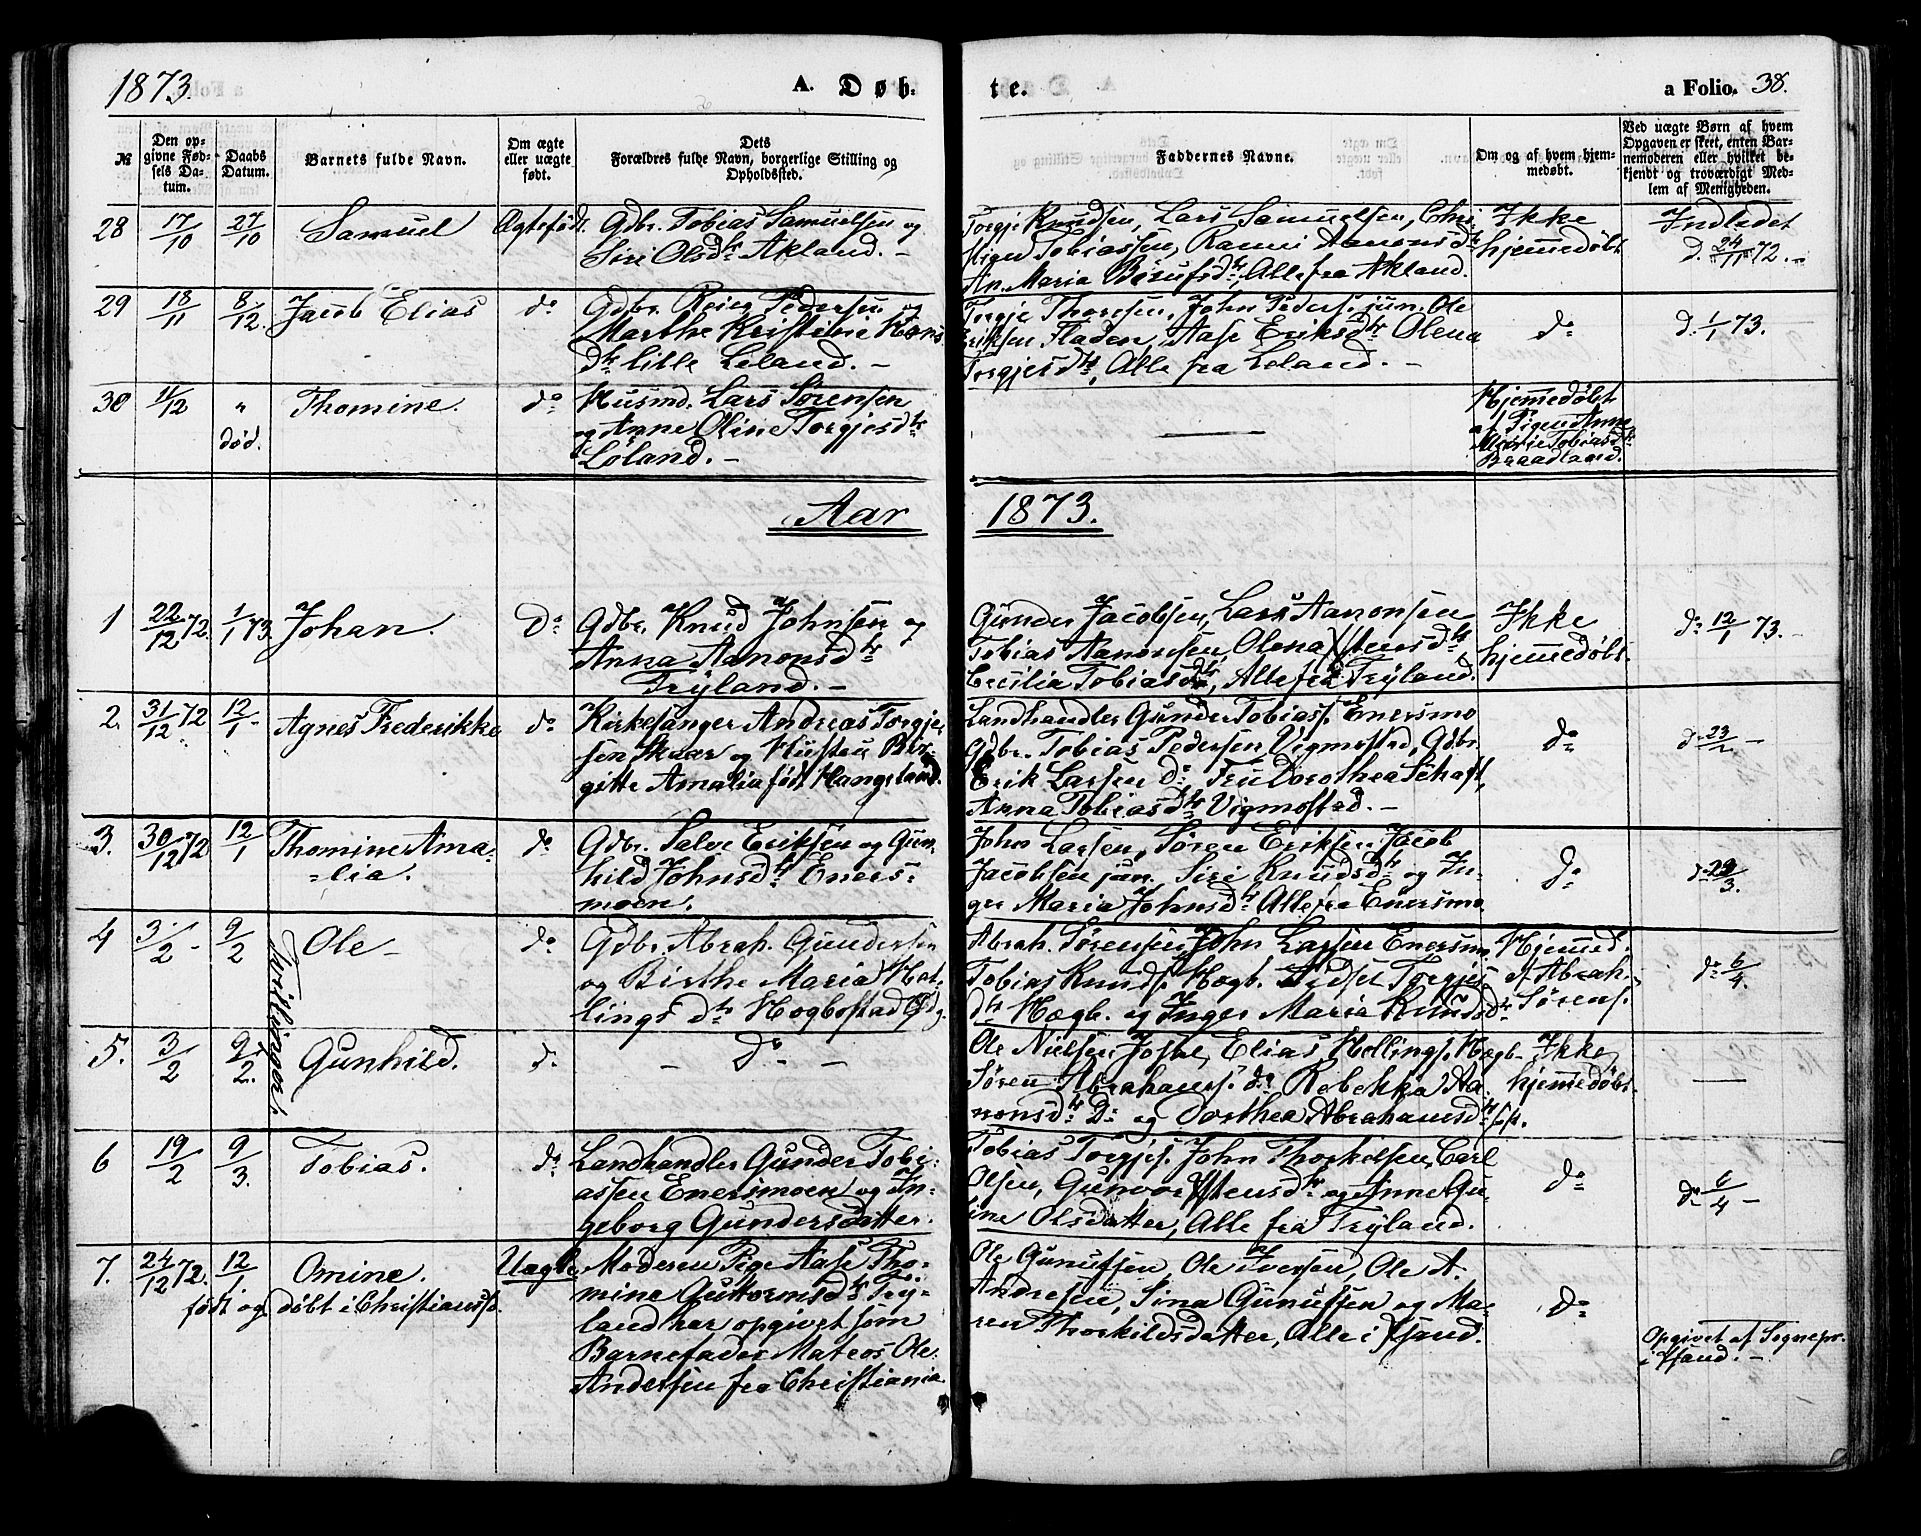 1873.
A. Døb-
te.
a Folio. 38.
№
Den op-
givne Fød-
sels Da-
tum.
Daabs
Datum.
Barnets fulde Navn.
Om ægte
eller uægte
født.
Dets
Forældres fulde Navn, borgerlige Stilling og
Opholdssted.
Faddernes Navne.
Om og af hvem hjem-
medøbt.
Ved uægte Børn af hvem
Opgaven er skeet, enten Bar-
nemoderen eller hvilket be-
kjendt og troværdigt Med-
lem af Menigheden.
28 17/10 27/10 Samuel Ægtefødt. Gdbr. Tobias Samuelsen og
Siri Olsdtr Akland. –
Torgje Knudsen, Lars Samuelsen, Chri-
stian Tobiassen, Ranni Aanonsdtr
An. Maria Berufsdtr, Alle fra Akland.
Ikke
hjemedøbt
Indledet
d. 24/11 72. –
29 18/11 8/12. Jacob Elias do Gdbr. Reier Pedersen og
Marthe Kristine Hans
Dtr lille Løland. –
Torgje Thoresen, John Peders. jun. Ole
Eriksen Fladen, Aase Eriksdtr Olena
Torgjesdtr, Alle fra Løland. –
do
d. 1/1 73.
30 11/12 "
død.
Thomine. do Husmd. Lars Sørensen
og Anne Oline Torgjesdtr
Løland. –
Hjemedøbt
af Pigen Anne
Marie Tobiasdtr
Braadland.
Aar 1873.
1 22/12 72. 1/1 73. Johan. Do Gdbr. Knud Johnsen og
Anna Aanonsdtr
Trÿland. –
Gunder Jacobsen, Lars Aanonsen
Tobias Aanonsen Olena Ystensdtr
Cecilia Tobiasdtr, Alle fra Trÿland.
Ikke
hjemedøbt.
do 12/1 73. –
2. 31/12 72 12/1 – Agnes Frederikke do Kirkesanger Andreas Torgje-
sen Skaar og Hustru Bir-
gitte Amalia født Haugeland.
Landhandler Gunder Tobiass. Enersmo
Gdbr. Tobias Pedersen Vigmostad, Gdbr.
Erik Larsen do Fru Dorothea Schaft,
Anna Tobiasdtr Vigmostad. –
do
do 23/2 –
3. 30/12 72 12/1 Thomine Ama-
-lia. do Gdbr. Salve Eriksen og Gun-
hild Johnsdtr Eners-
moen.
John Larsen, Søren Eriksen, Jacob
Jacobsen jun. Siri Knudsdtr og In-
ger Maria Johnsdtr Alle fra Enersmo.
do
do 29/3.
4 3/2 – 9/2 Ole – do Gdbr. Abrah. Gundersen
og Birthe Maria Hel-
lingsdtr Høgbostad
Tvillinger.
Abrah. Sørensen, John Larsen Enersmo,
Tobias Knuds. Høgb. Sidsel Torgjes
dtr Høgb. og Inger Maria Knudsdtr
Hjemed.
af Abrah.
Sørens.
do 6/4.
5. 3/2 9/2. Gunhild. do – Do –
Ole Nielsen Josbe, Elias Hellings. Høgb.
Søren Abrahams. do Rebekka Aa-
nonsdtr Do og Dorthea Abrahamsdtr
Ikke
hjemedøbt
6 19/2 9/3. Tobias. do Landhandler Gunder Tobi-
assen Enersmoen og In-
geborg Gundersdatter.
Tobias Torgjes. John Thorkelsen, Carl
Olsen, Gunvor Ystensdtr og Anne Gu-
rine Olsdatter, Alle fra Trÿland.
do
do 6/4 –
7. 24/12 72. 12/1. Omine.
født og døbt i Christianss.
Uægte Moderen Pige Aase Tho-
mine Guttormsdtr Trÿ-
land har opgivet som
Barnefader Mateos Ole
Andersen fra Christiania
Ole Gunufsen, Ole Iversen, Ole A.
Andresen, Sina Gunufsen og Ma-
ren Thorkildsdatter, Alle i Xsand.
do
Opgivet af Sognepr.
i Xsand. –